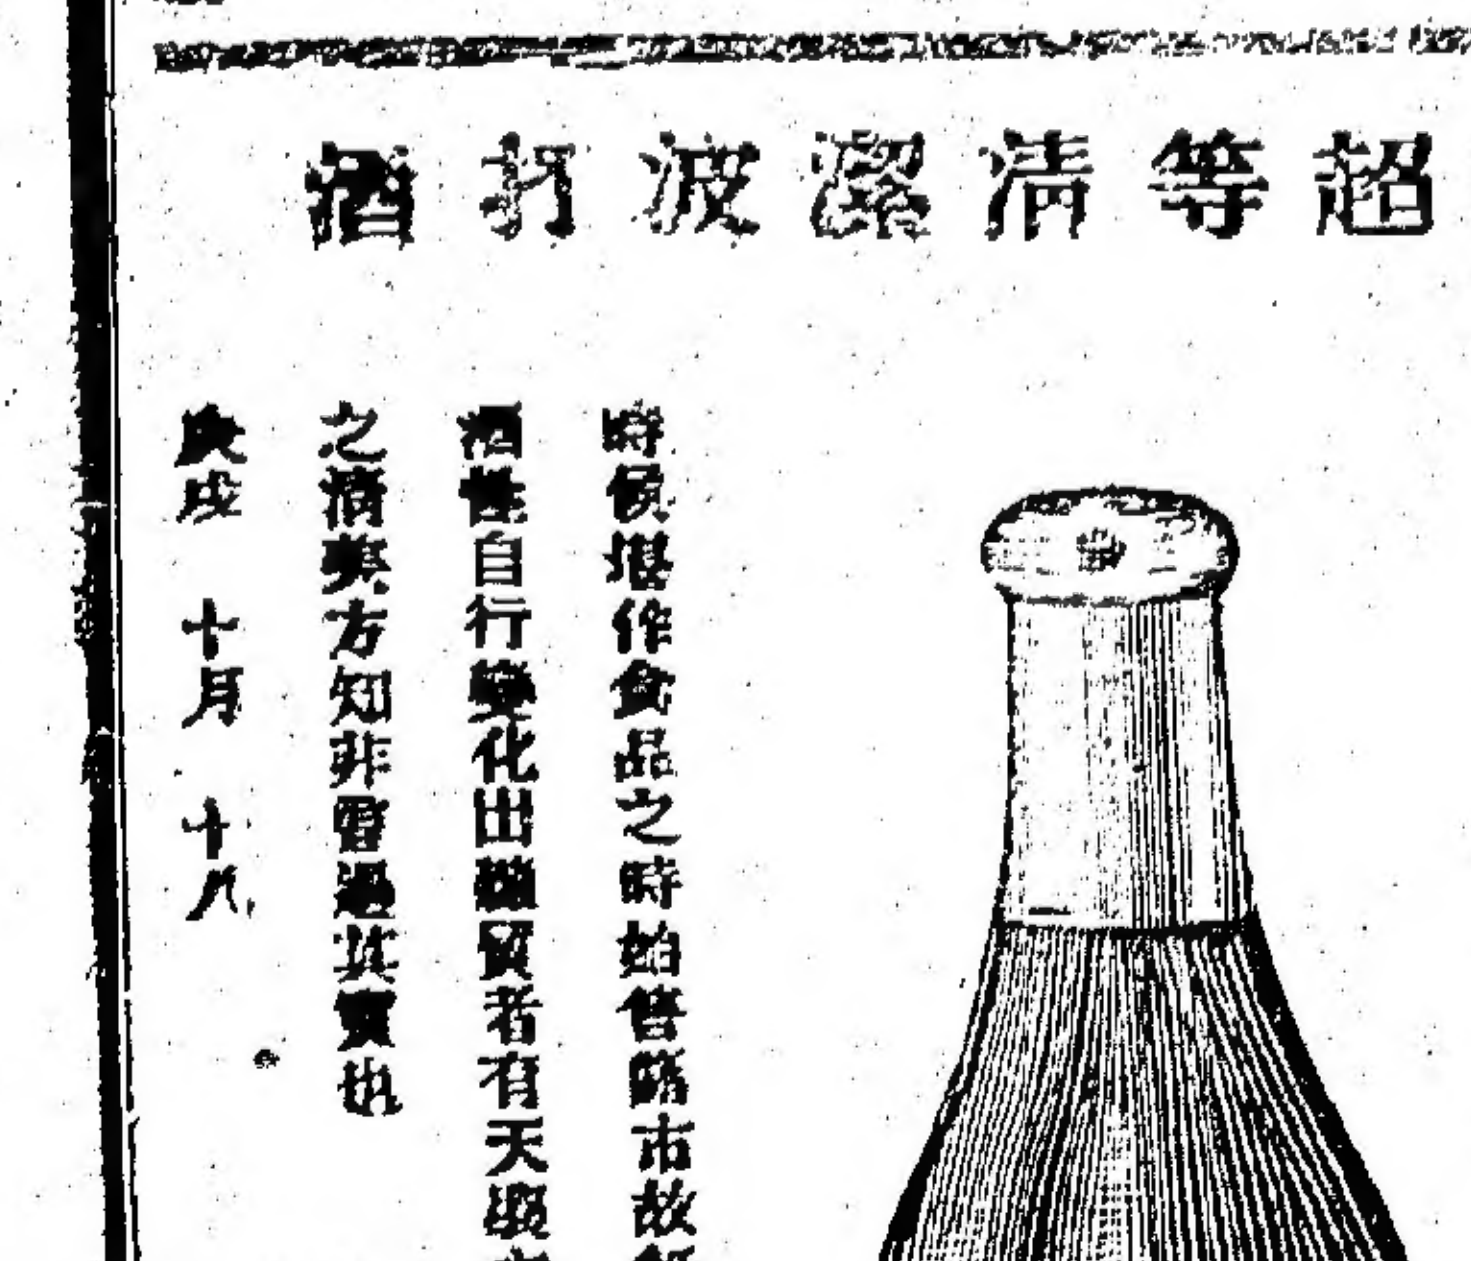 超等清潔波打酒
時候堪作食品之時始售臨市故
酒性自行變化出糖質者有天淵
之清爽方知非言過其實也
庚戌 十月 十八